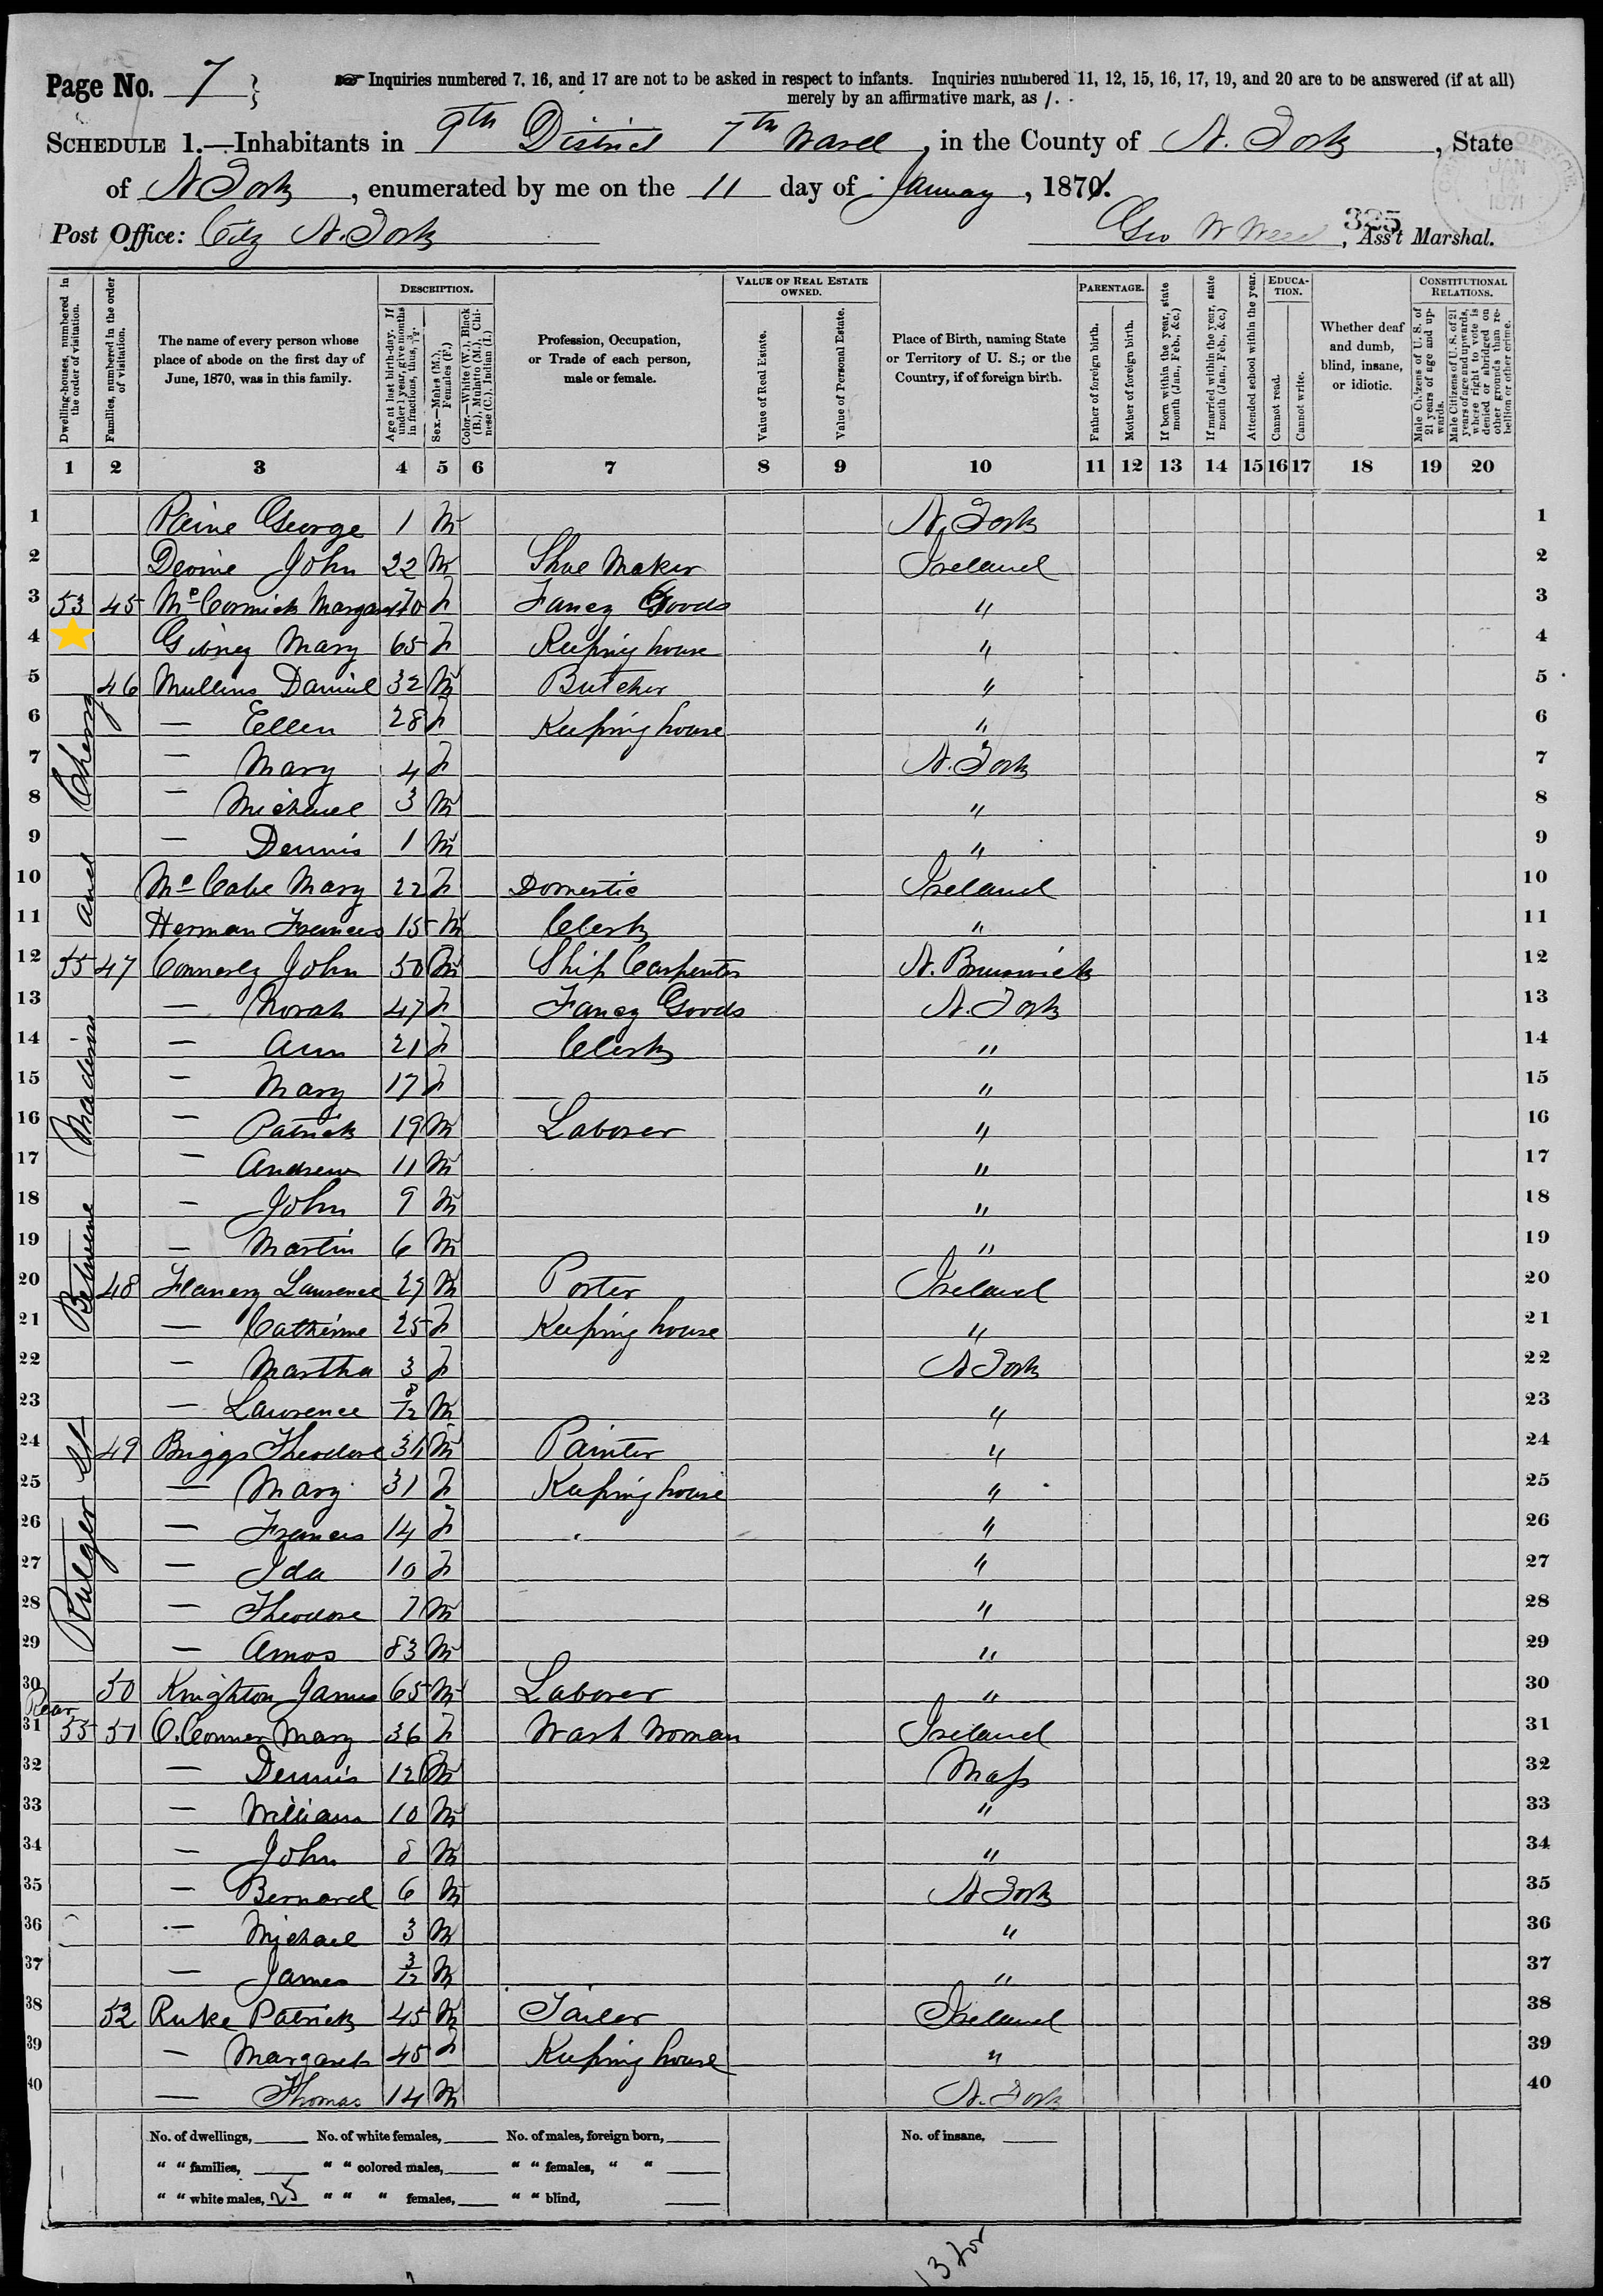 Page No. 7
Inquiries numbered 7, 16, and 17 are not to be asked in respect to infants. Inquiries numbered 11, 12, 15, 16, 17, 19, and 20 are to be answered (if at all)
merely by an affirmative mark, as /.
SCHEDULE 1.—Inhabitants in 9th District 7th Ward, in the County of N. York, State
of N York, enumerated by me on the 11 day of January, 1871.
CENSUS OFFICE. JAN 1871
325
Post Office: City N. York Geo W, Ass't Marshal.
Dwelling-houses, numbered in the order of visitation.
Families, numbered in the order of visitation.
The name of every person whose place of abode on the first day of June, 1870, was in this family.
DESCRIPTION.
Age at last birth-day. If under 1 year, give months in fractions, thus, 3/12
Sex.—Males (M.), Females (F.)
Color.—White (W.), Black (B.), Mulatto (M.), Chinese (C.), Indian (I.)
Profession, Occupation, or Trade of each person, male or female.
VALUE OF REAL ESTATE OWNED.
Value of Real Estate.
Value of Personal Estate.
Place of Birth, naming State or Territory of U. S.; or the Country, if of foreign birth.
PARENTAGE.
Father of foreign birth.
Mother of foreign birth.
If born within the year, state month (Jan., Feb., &c.)
If married within the year, state month (Jan., Feb., &c.)
Attended school within the year.
EDUCATION.
Cannot read.
Cannot write.
Whether deaf and dumb, blind, insane, or idiotic.
CONSTITUTIONAL RELATIONS.
Male Citizens of U. S. of 21 years of age and upwards.
Male Citizens of U. S. of 21 years of age and upwards, where right to vote is denied or abridged on other grounds than rebellion or other crime.
1 2 3 4 5 6 7 8 9 10 11 12 13 14 15 16 17 18 19 20
1 Paine George 1 M N. York 1
2 Devine John 22 M Shoe Maker Ireland 2
3 53 45 McCormick Margaret 70 F Fancy Goods " 3
4 Gibney Mary 65 F Keeping house " 4
5 46 Mullins Daniel 32 M Butcher " 5
6 — Ellen 28 F Keeping house " 6
7 — Mary 4 F N. York 7
8 — Michael 3 M " 8
9 — Dennis 1 M " 9
10 McCabe Mary 22 F Domestic Ireland 10
11 Herman Frances 15 M Clerk " 11
12 55 47 Connerly John 50 M Ship Carpenter N. Brunswick 12
13 — Norah 47 F Fancy Goods N. York 13
14 — Ann 21 F Clerk " 14
15 — Mary 17 F " 15
16 — Patrick 19 M Laborer " 16
17 — Andrew 11 M " 17
18 — John 9 M " 18
19 — Martin 6 M " 19
20 48 Flanery Lawrence 29 M Porter Ireland 20
21 — Catherine 25 F Keeping house " 21
22 — Martha 3 F N York 22
23 — Lawrence 8/12 M " 23
24 49 Briggs Theodore 34 M Painter " 24
25 — Mary 31 F Keeping house " 25
26 — Frances 14 F " 26
27 — Ida 10 F " 27
28 — Theodore 7 M " 28
29 — Amos 83 M " 29
30 50 Knighton James 65 M Laborer " 30
Rear
31 55 51 O.Conner Mary 36 F Wash Woman Ireland 31
32 — Dennis 12 M Mass 32
33 — William 10 M " 33
34 — John 8 M " 34
35 — Bernard 6 M N York 35
36 — Michael 3 M " 36
37 — James 3/12 M " 37
38 52 Ruke Patrick 45 M Tailer Ireland 38
39 — Margaret 45 F Keeping house " 39
40 — Thomas 14 M N. York 40
Rutger St Betwene Madison and Cherry
No. of dwellings, No. of white females, No. of males, foreign born, No. of insane,
" " families, " " colored males, " " females, " "
" " white males, 25 " " " females, " " blind,
13 for